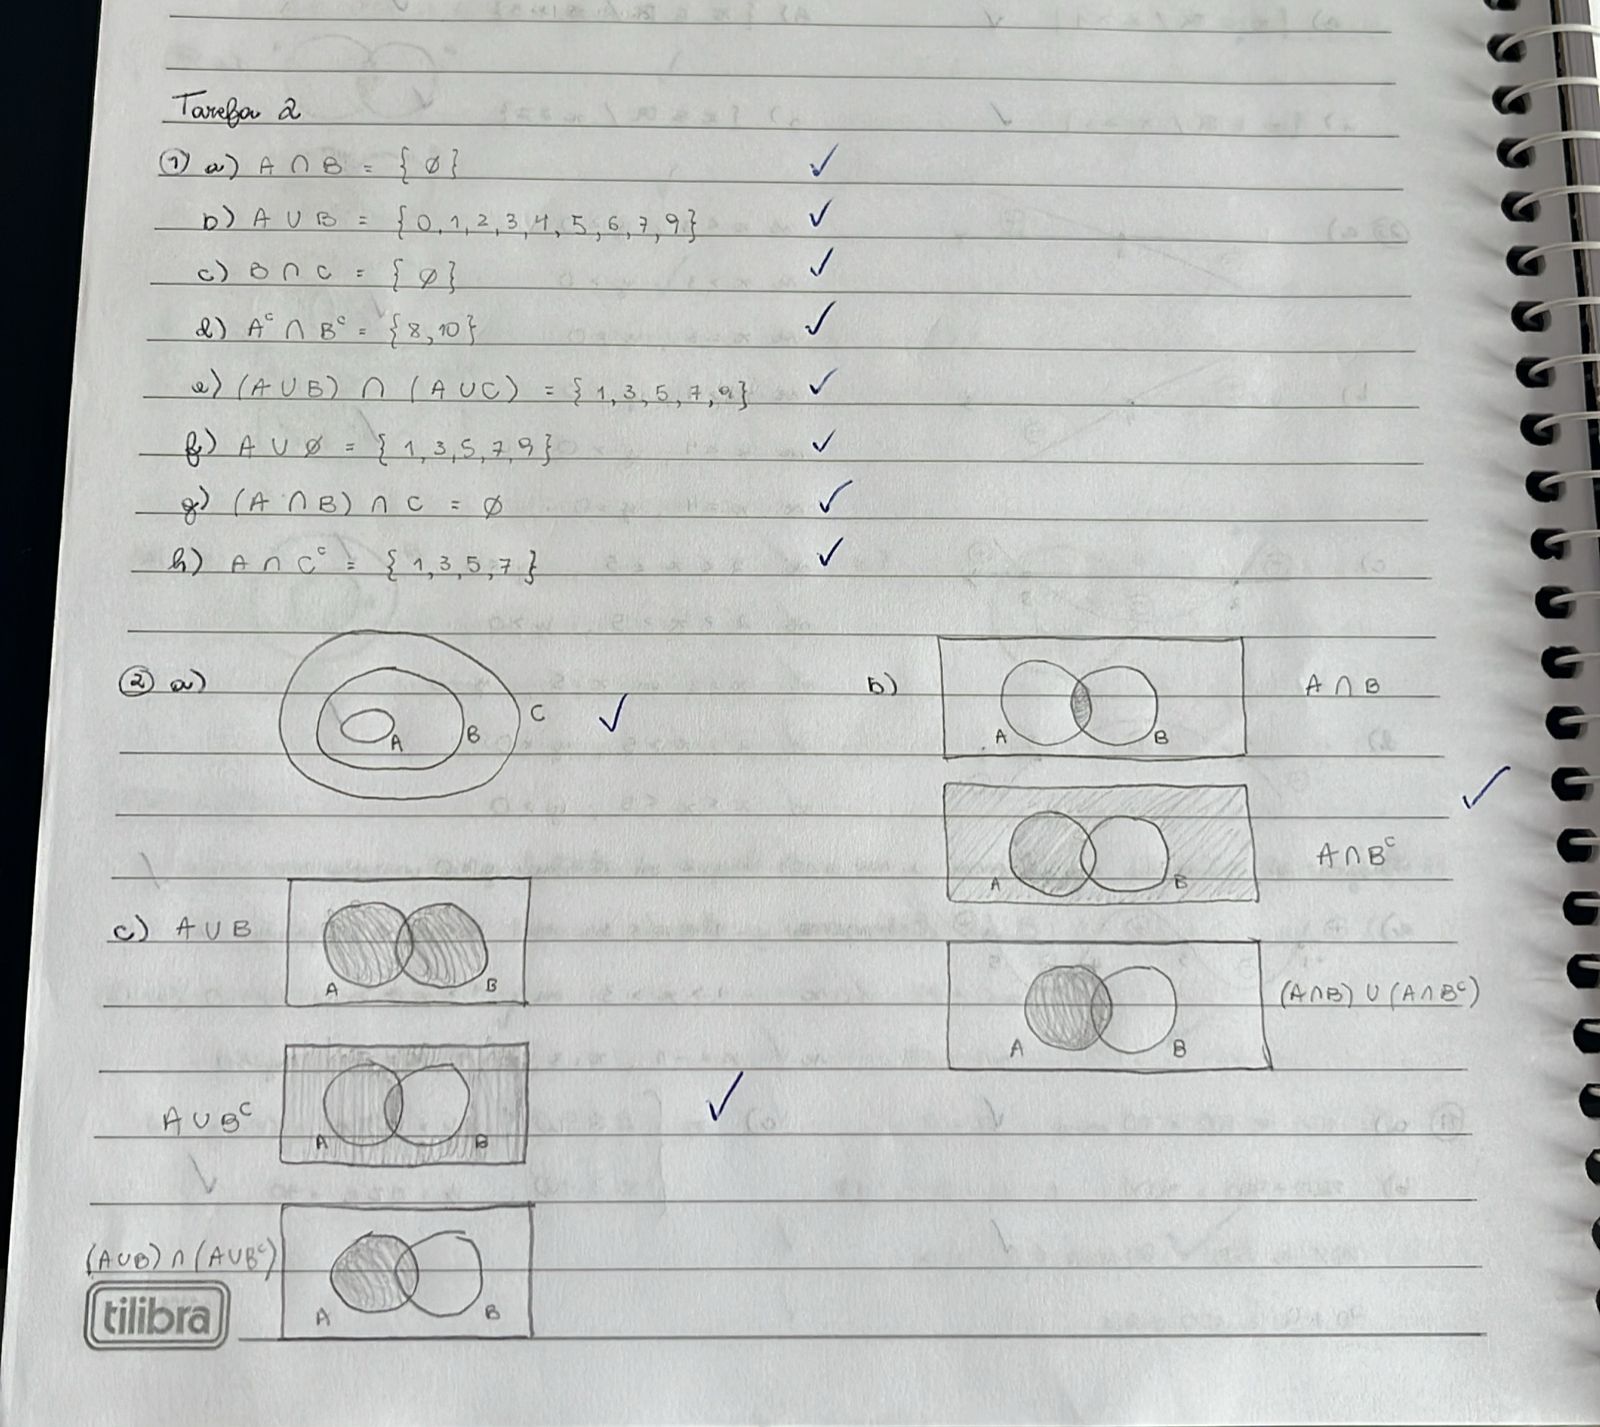 Tarefa 2
① a) A ∩ B = { ∅ }
b) A ∪ B = { 0, 1, 2, 3, 4, 5, 6, 7, 9 }
c) B ∩ C = { ∅ }
d) Aᶜ ∩ Bᶜ = { 8, 10 }
e) (A ∪ B) ∩ (A ∪ C) = { 1, 3, 5, 7, 9 }
f) A ∪ ∅ = { 1, 3, 5, 7, 9 }
g) (A ∩ B) ∩ C = ∅
h) A ∩ Cᶜ = { 1, 3, 5, 7 }
② a)
A B C
b) A ∩ B
A B
A ∩ Bᶜ
A B
(A∩B) ∪ (A∩Bᶜ)
A B
c) A ∪ B
A B
A ∪ Bᶜ
A B
(A∪B) ∩ (A∪Bᶜ)
A B
tilibra